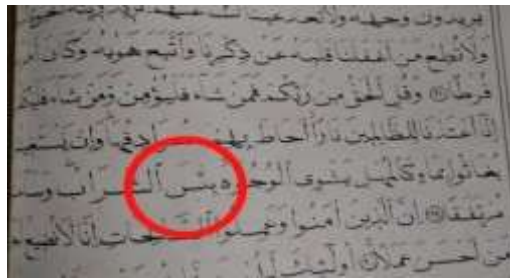 يريدون وجهه ولا تعد عيناك عنهم تريد زينة
ولا تطع من أغفلنا قلبه عن ذكرنا واتبع هويه وكان أمر
فرطا وقل الحق من ربكم فمن شاء فليؤمن ومن شاء فليكفر
إنا أعتدنا للظالمين نارا أحاط بهم سرادقها وإن يستغيثوا
يغاثوا بماء كالمهل يشوي الوجوه بئس الشراب وساءت
مرتفقا إن الذين آمنوا وعملوا الصالحات إنا لا نضيع
من أحسن عملا أولئك لهم